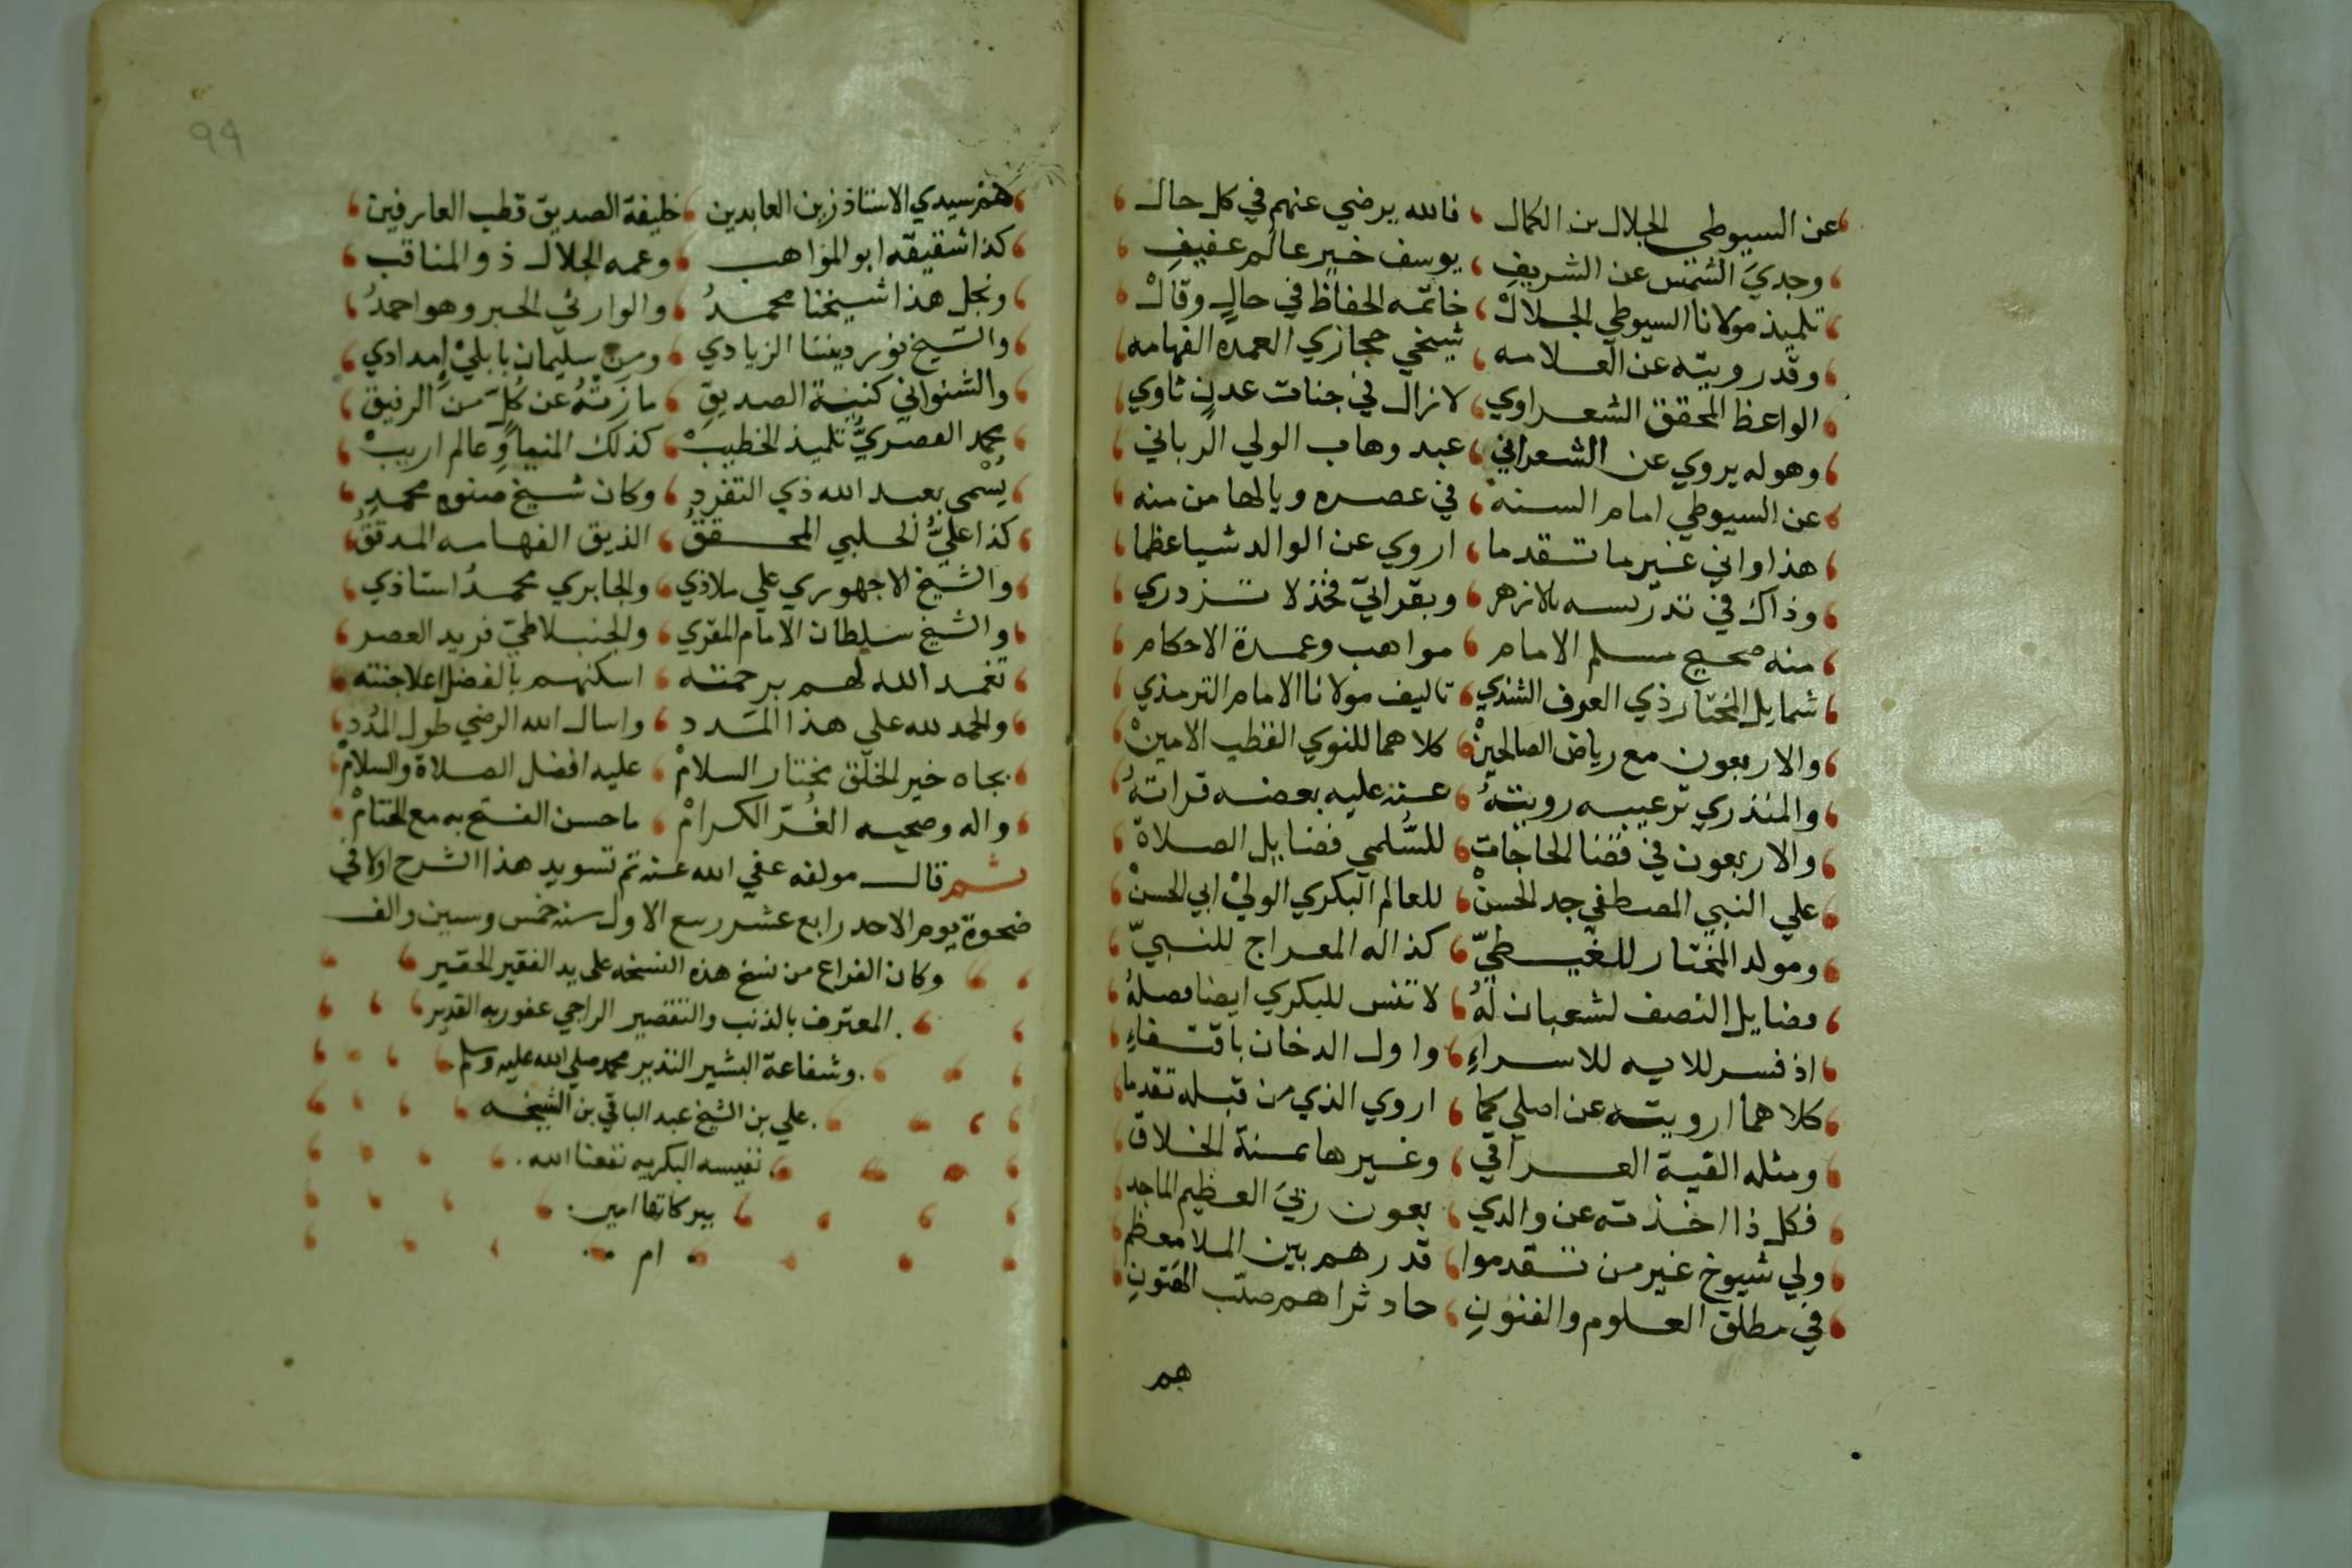 عن السيوطي الجلال بن الكمال ، فالله يرضي عنهم في كل حال
وجدي الشمس عن الشريف ، يوسف خير عالم عفيف
تلميذ مولانا السيوطي الجلال ، خاتمه الحفاظ في حال وقال
وقد رويته عن العلامه ، شيخي حجازي العمده الفهامه
الواعظ المحقق الشعراوي ، لازال في جنات عدن ثاوي
وهو له يروي عن الشعراني ، عبد وهاب الولي الرباني
عن السيوطي امام السنه ، في عصره ويالها من منه
هذا واني غير ما تقدما ، اروي عن الوالد شيا عظما
وذاك في تدريسه بالازهر ، وبقراتي فخذ لا تزدري
منه صحيح مسلم الامام ، مواهب وعمدة الاحكام
شمايل المختار ذي العرف الشذي ، تاليف مولانا الامام الترمذي
والاربعون مع رياض الصالحين ، كلاهما للنووي القطب الامين
والمنذري ترغيبه رويته ، عنه عليه بعضه قراته
والاربعون في قضا الحاجات ، للسلمي فضايل الصلاة
علي النبي المصطفي جد الحسن ، للعالم البكري الولي ابي الحسن
ومولد المختار للغيطي ، كذا له المعراج للنبي
فضايل النصف لشعبان له ، لا تنس للبكري ايضا فصله
اذ فسر للايه للاسراء ، واول الدخان باقتفاء
كلاهما ارويته عن اصلي كما ، اروي الذي من قبله تقدما
ومثله الفية العراقي ، وغيرها بمنة الخلاق
فكل ذا اخذته عن والدي ، بعون ربي العظيم الماجد
ولي شيوخ غير من تقدموا ، قدرهم بين الملا معظم
في مطلق العلوم والفنون ، جاد ثراهم صيب الهتون
هم
99
هم سيدي الاستاذ زين العابدين ، خليفة الصديق قطب العارفين
كذا شقيقه ابو المواهب ، وعمه الجلال ذو المناقب
ونجل هذا شيخنا محمد ، والوارثي الحبر وهو احمد
والشيخ نور ديننا الزيادي ، ومن سليمان بابلي امدادي
والشنواني كنية الصديق ، ما زته عن كل من الرفيق
محمد القصري تلميذ الخطيب ، كذلك المنياوي عالم اريب
يسمي بعبد الله ذي التفرد ، وكان شيخ صنوه محمد
كذا علي الحلبي المحقق ، الذيق الفهامه المدقق
والشيخ الاجهوري علي ملاذي ، والجابري محمد استاذي
والشيخ سلطان الامام المقري ، والجنبلاطي فريد العصر
تغمد الله لهم برحمته ، اسكنهم بالفضل اعلا جنته
والحمد لله علي هذا المدد ، واسال الله الرضي طول المدد
بجاه خير الخلق مختار السلام ، عليه افضل الصلاة والسلام
واله وصحبه الغر الكرام ، ما حسن الفتح به مع الختام
ثم قال مولفه عفي الله عنه تم تسويد هذا الشرح اولا في
ضحوة يوم الاحد رابع عشر ربيع الاول سنه خمس وستين والف
وكان الفراغ من نسخ هذه النسخه علي يد الفقير الحقير
المعترف بالذنب والتقصير الراجي عفو ربه القدير
وشفاعة البشير النذير محمد صلي الله عليه وسلم
علي بن الشيخ عبد الباقي بن الشيخه
نفيسه البكريه نفعنا الله
ببركاتها امين
ام